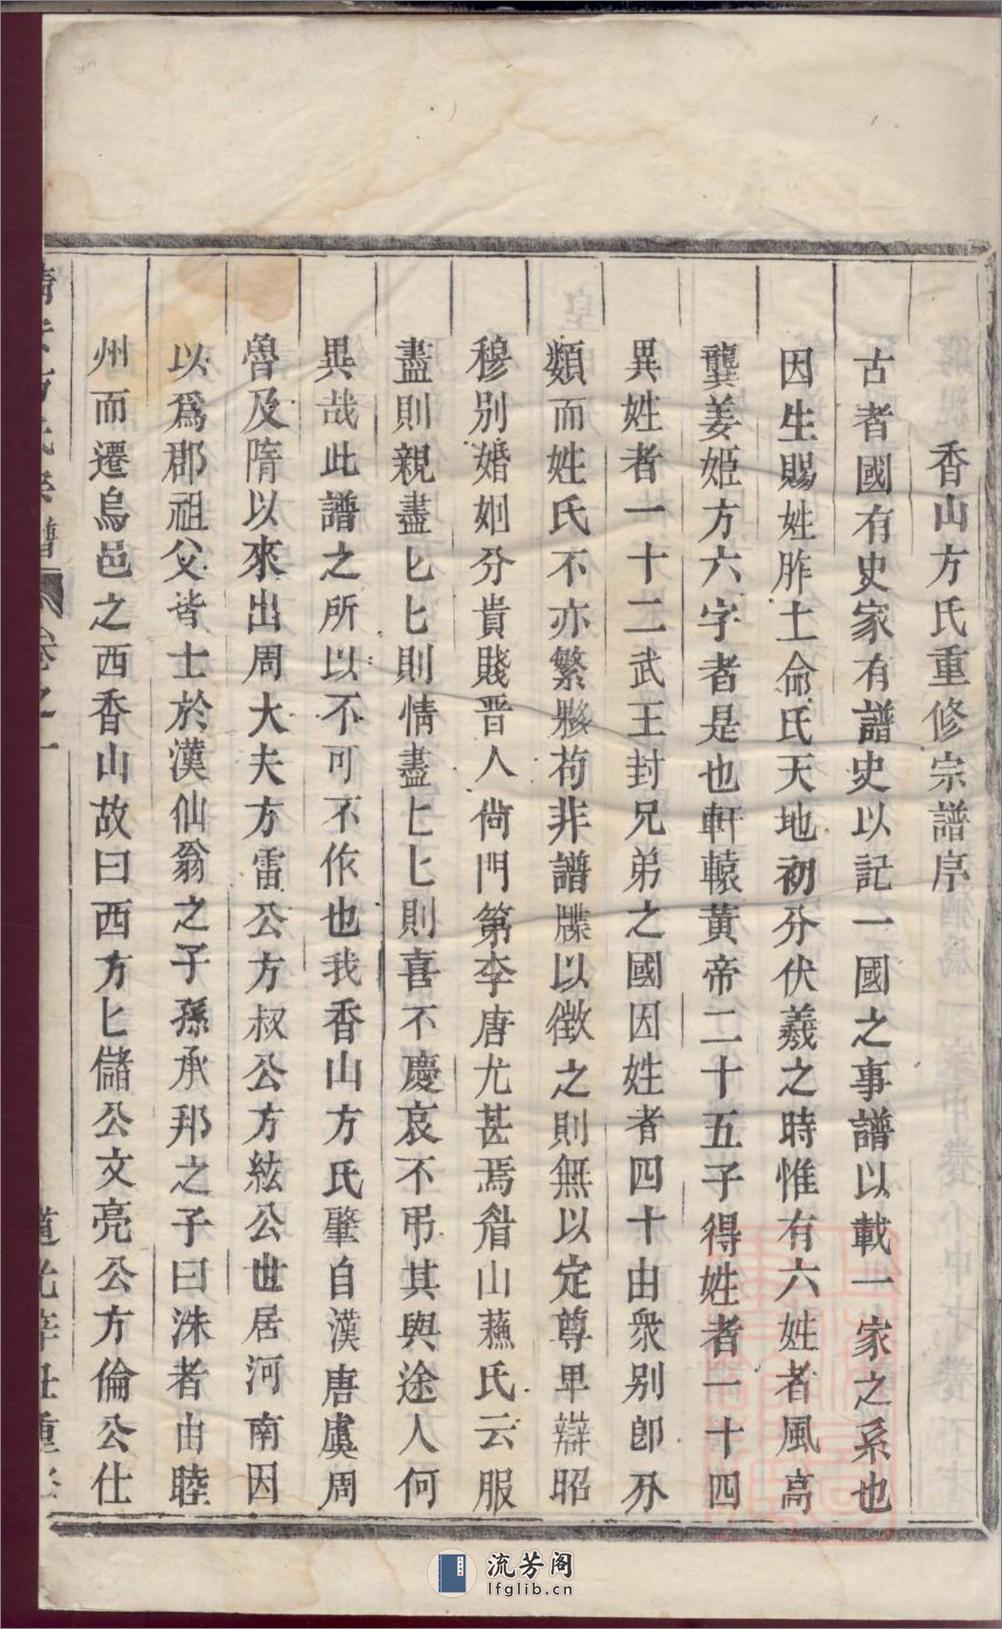 香山方氏重修宗譜序
古者國有史家有譜史以記一國之事譜以載一家之系也
因生賜姓胙土命氏天地初分伏羲之時惟有六姓者風高
龔姜姬方六字者是也軒轅黃帝二十五子得姓者一十四
異姓者一十二武王封兄弟之國因姓者四十由衆別卽分
類而姓氏不亦繁夥苟非譜牒以徵之則無以定尊卑辯昭
穆別婚姻分貴賤晉人尙門第李唐尤甚焉眉山蘓氏云服
盡則親盡匕匕則情盡匕匕則喜不慶哀不弔其與途人何
異哉此譜之所以不可不作也我香山方氏肇自漢唐虞周
魯及隋以來出周大夫方雷公方叔公方紘公世居河南因
以爲郡祖父皆士於漢仙翁之子孫承邦之子曰洙者由睦
州而遷烏邑之西香山故曰西方匕儲公文亮公方倫公仕
方氏宗譜 卷之一 道光辛丑重
流芳阁
lfglib.cn